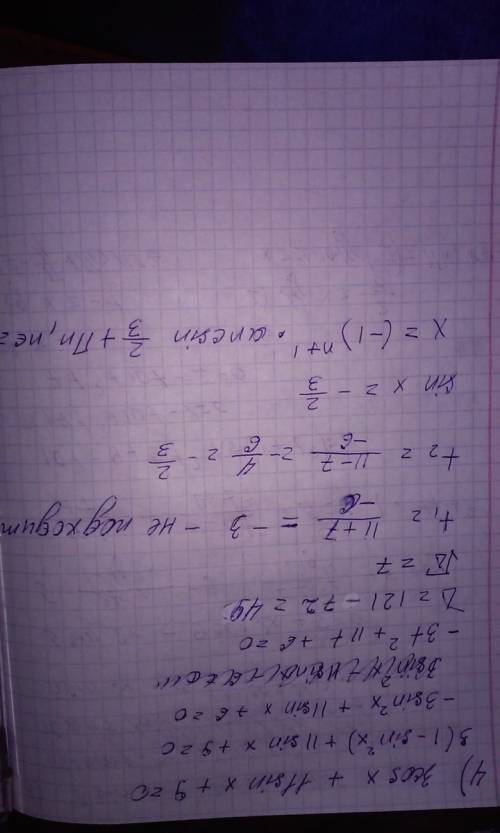 4) 3cos x + 11sin x + 9 = 0
3(1 - sin²x) + 11sin x + 9 = 0
-3sin²x + 11sin x + 6 = 0
-3t² + 11t + 6 = 0
D = 121 - 72 = 49
√D = 7
t₁ = (11+7)/(-6) = -3 - не подходит
t₂ = (11-7)/(-6) = -4/6 = -2/3
sin x = -2/3
x = (-1)ⁿ⁺¹ · arcsin 2/3 + Пn, n∈